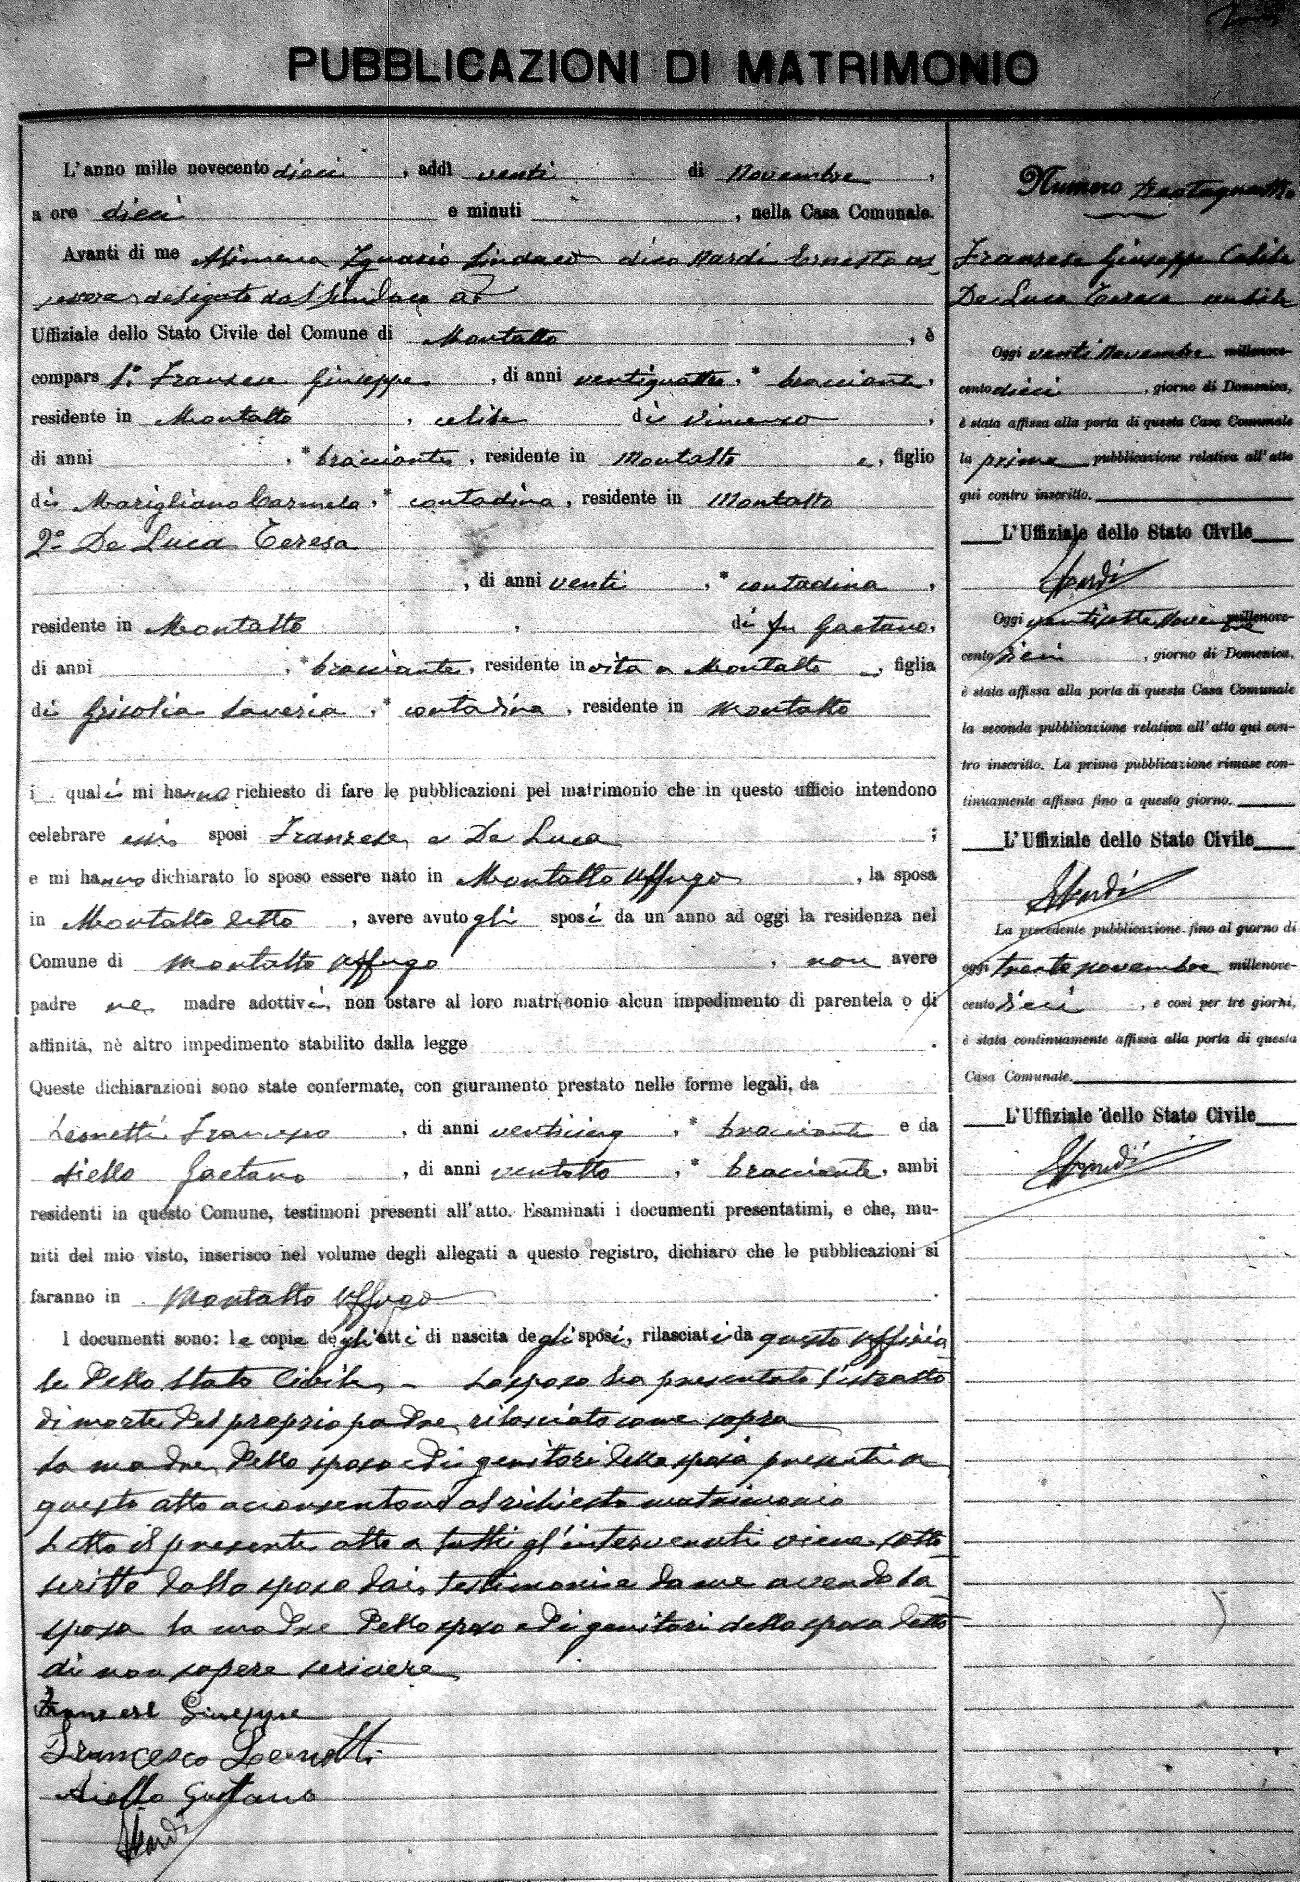 PUBBLICAZIONI DI MATRIMONIO
L'anno mille novecento dieci, addì venti di Novembre,
a ore dieci e minuti, nella Casa Comunale.
Avanti di me Alimena Ignazio Sindaco dico Nardi Ernesto as-
sessore delegato dal Sindaco ad
Uffiziale dello Stato Civile del Comune di Montalto, è
compars 1º Franzese Giuseppe, di anni ventiquattro, * bracciante,
residente in Montalto, celibe di Vincenzo,
di anni, * bracciante, residente in Montalto e, figlio
di Marigliano Carmela, * contadina, residente in Montalto
2º De Luca Teresa
, di anni venti, * contadina,
residente in Montalto, di fu Gaetano,
di anni, * bracciante, residente in vita a Montalto, figlia
di Gricolia Saveria, * contadina, residente in Montalto
i quali mi hanno richiesto di fare le pubblicazioni pel matrimonio che in questo ufficio intendono
celebrare essi sposi Franzese e De Luca;
e mi hanno dichiarato lo sposo essere nato in Montalto Uffugo, la sposa
in Montalto detto, avere avuto gli sposi da un anno ad oggi la residenza nel
Comune di Montalto Uffugo, non avere
padre nè madre adottivi, non ostare al loro matrimonio alcun impedimento di parentela o di
affinità, nè altro impedimento stabilito dalla legge.
Queste dichiarazioni sono state confermate, con giuramento prestato nelle forme legali, da
Leonetti Francesco, di anni venticinq, * bracciante e da
Aiello Gaetano, di anni ventotto, * bracciante, ambi
residenti in questo Comune, testimoni presenti all'atto. Esaminati i documenti presentatimi, e che, mu-
niti del mio visto, inserisco nel volume degli allegati a questo registro, dichiaro che le pubblicazioni si
faranno in Montalto Uffugo.
I documenti sono: le copie degli atti di nascita degli sposi, rilasciati da questo Uffizia
le dello Stato Civile, - La sposa ha presentato l'estratto
di morte del proprio padre rilasciato come sopra
La madre dello sposo e di genitori della sposa presenti a
questo atto acconsentono al richiesto matrimonio
Letto il presente atto a tutti gl'intervenuti viene sotto
scritto dallo sposo dai testimoni e da me avendo la
sposa la madre dello sposo e di genitori della sposa detto
di non sapere scrivere
Franzese Giuseppe
Francesco Leonetti
Aiello Gaetano
Nardi
Numero trentaquattro
Franzese Giuseppe Celibe
De Luca Teresa nubile
Oggi venti Novembre millenove-
cento dieci, giorno di Domenica,
è stata affissa alla porta di questa Casa Comunale
la prima pubblicazione relativa all'atto
qui contro inscritto.
L'Uffiziale dello Stato Civile
Nardi
Oggi ventisette Novembre millenove-
cento dieci, giorno di Domenica,
è stata affissa alla porta di questa Casa Comunale
la seconda pubblicazione relativa all'atto qui con-
tro inscritto. La prima pubblicazione rimase con-
tinuamente affissa fino a questo giorno.
L'Uffiziale dello Stato Civile
Nardi
La precedente pubblicazione fino al giorno di
oggi trenta novembre millenove-
cento dieci, e così per tre giorni,
è stata continuamente affissa alla porta di questa
Casa Comunale.
L'Uffiziale dello Stato Civile
Nardi